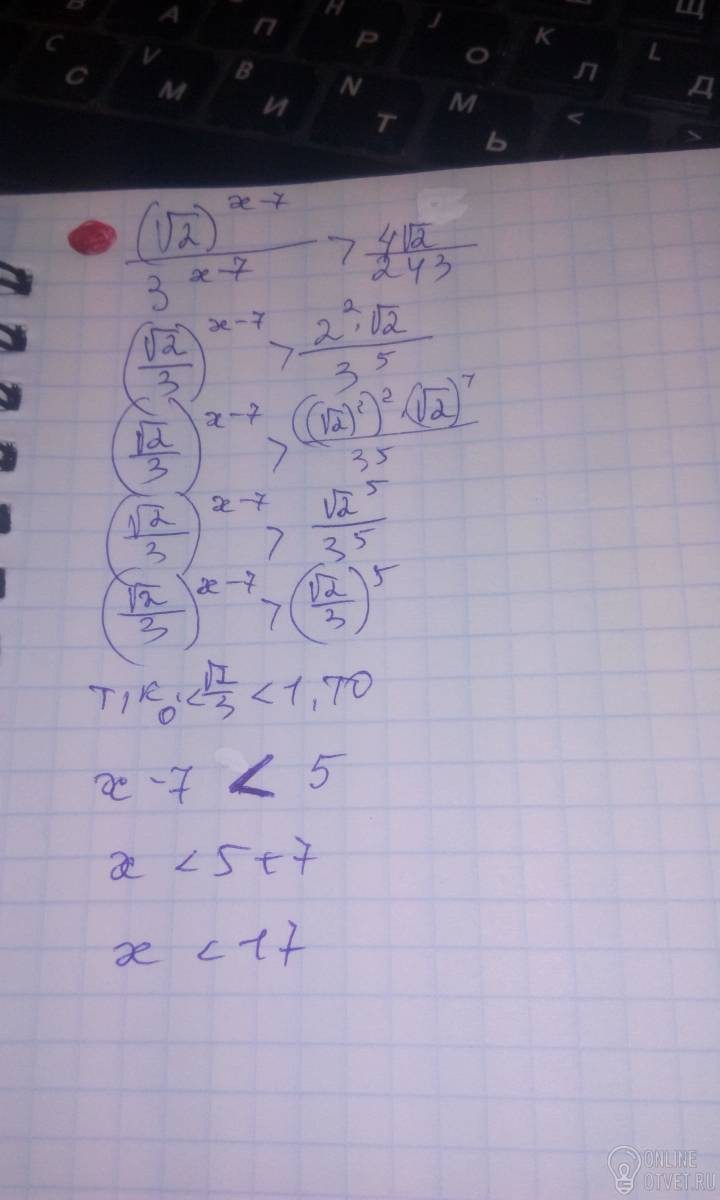 В А П Н Р J О K Л L Д Щ
C С V М B И N Т M Ь < >
(√2)^(x-7) / 3^(x-7) > 4√2 / 243
(√2/3)^(x-7) > 2^2·√2 / 3^5
(√2/3)^(x-7) > ((√2)^2)^2·(√2)^1 / 3^5
(√2/3)^(x-7) > √2^5 / 3^5
(√2/3)^(x-7) > (√2/3)^5
т,к, 0<√2/3<1, то
x-7 < 5
x < 5+7
x < 17
ONLINE
OTVET.RU